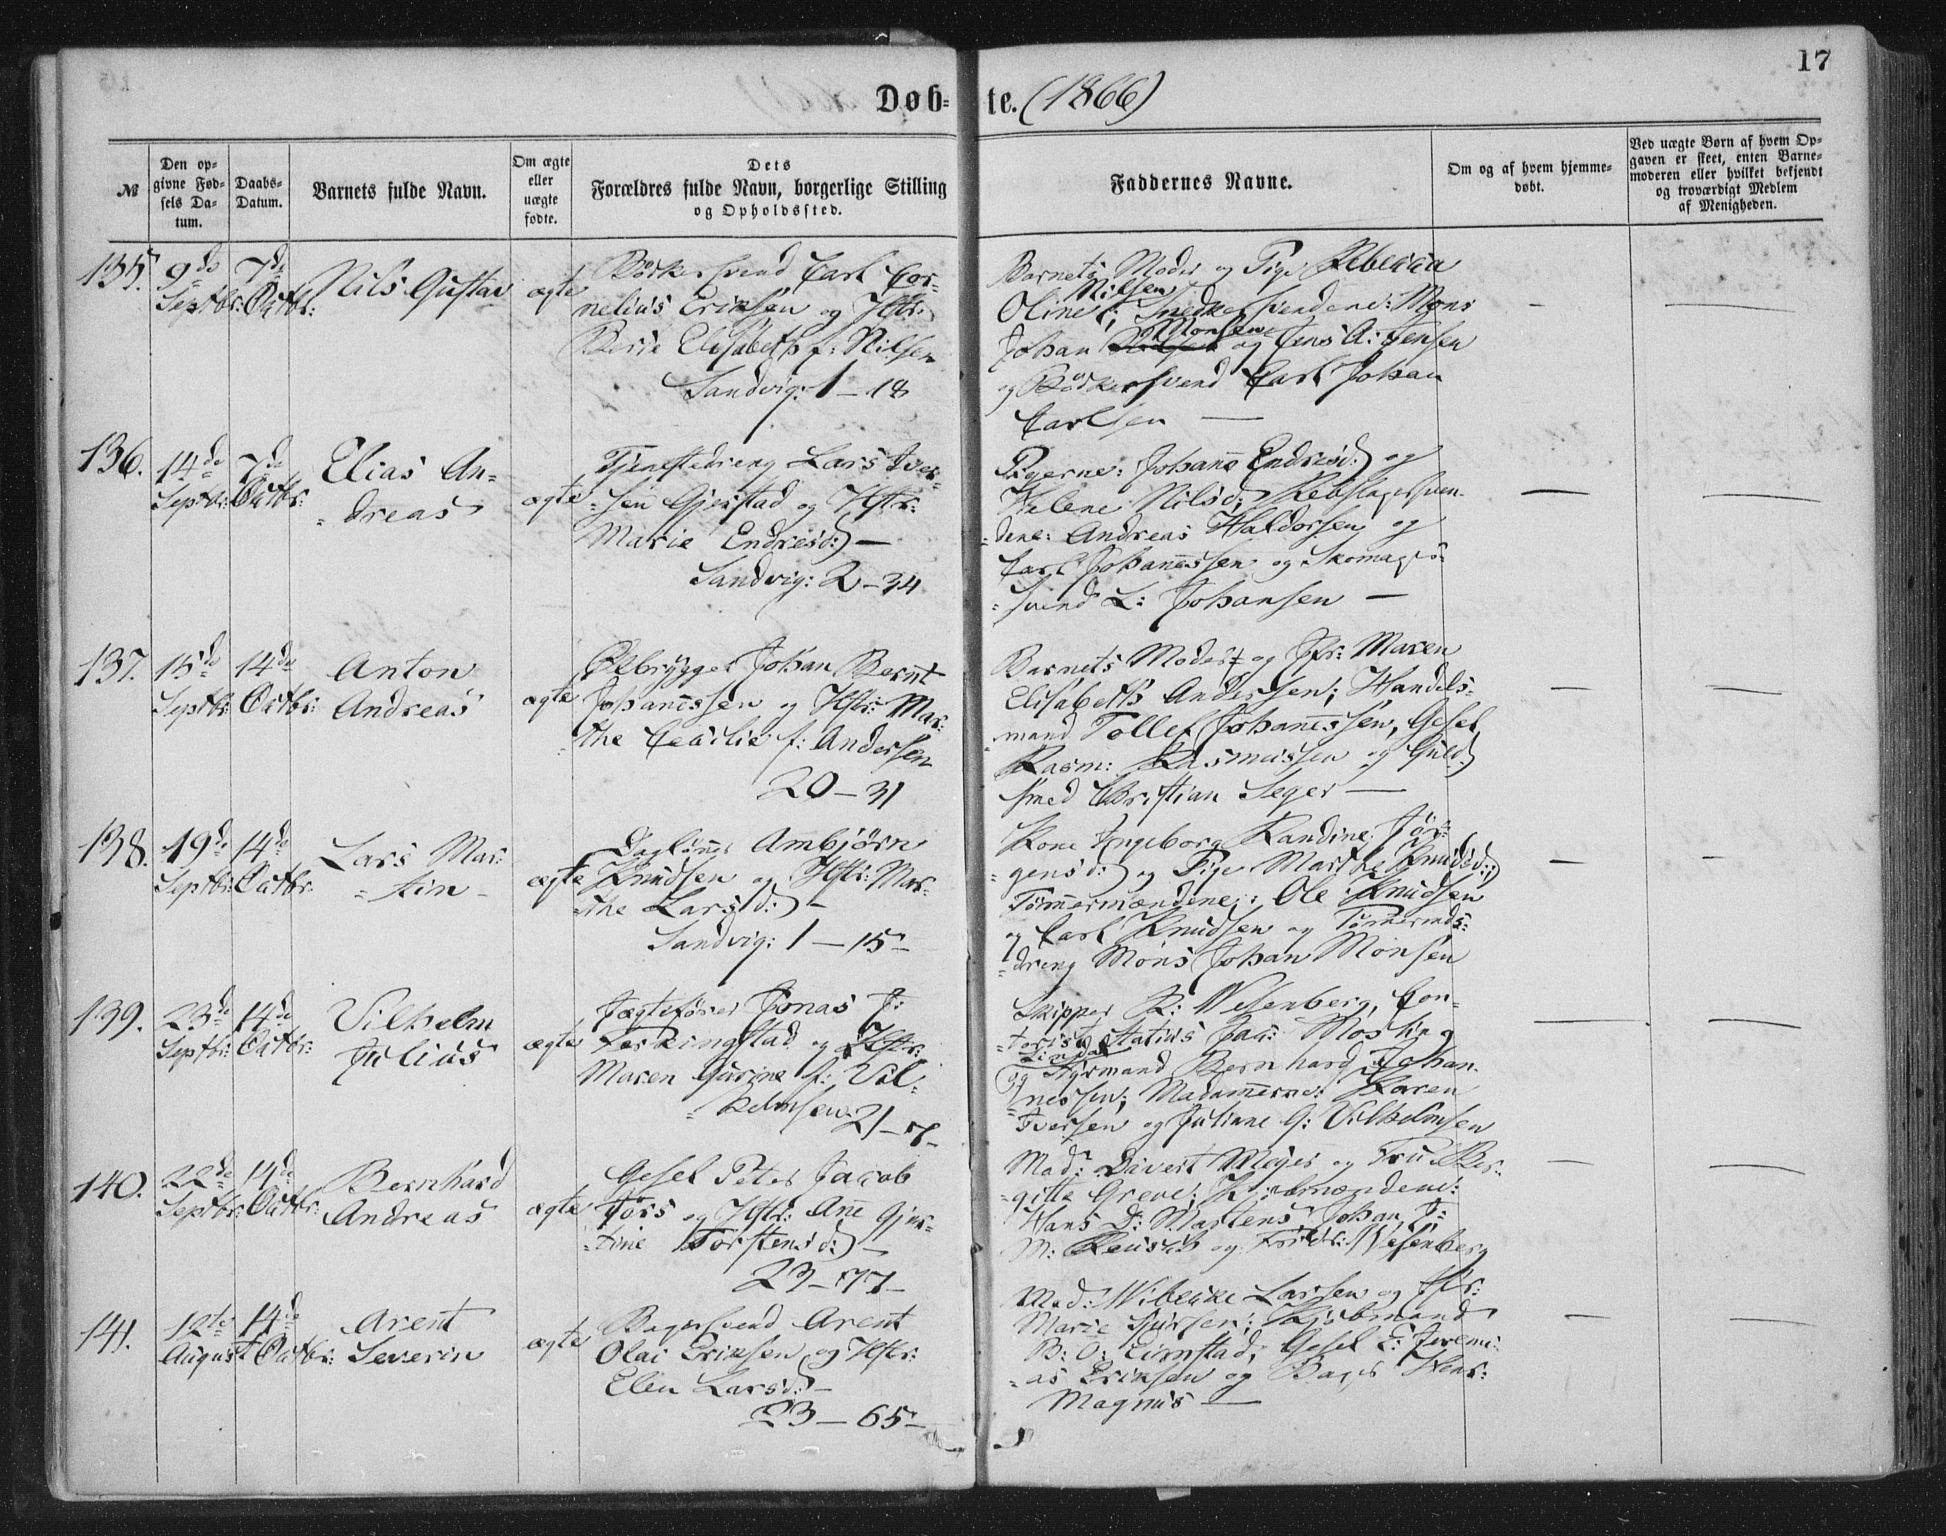 17
Døb-
te. (1866)
№
Den op-
givne Fød-
sels Da-
tum.
Daabs-
Datum.
Barnets fulde Navn.
Om ægte
eller
uægte
fødte.
Dets
Forældres fulde Navn, borgerlige Stilling
og Opholdssted.
Faddernes Navne.
Om og af hvem hjemme-
døbt.
Ved uægte Børn af hvem Op-
gaven er skeet, enten Barne-
moderen eller hvilket bekjendt
og troværdigt Medlem
af Menigheden.
135.
9de
Septbr:
7de
Octbr:
Nils Gustav
ægte
Bødkersvend Carl Cor-
nelius Eriksen og Hstr:
Elisabeth f: Nilsen
Sandvig: 1 - 18
Barnets Moder og Pige Rebecca
Nilsen
Oline; Snedkersvendene: Mons
Monsen
Johan og Jens A: Jensen
og Bødkersvend Carl Johan
Carlsen —
136.
14de
Septbr:
7de
Octbr:
Elias An-
- dreas
ægte
Tjenestedreng Lars Iver-
- sen Gjerstad og Hstr:
Marie Endresd: —
Sandvig: 2 - 34
Pigerne: Johanne Endresd: og
Helene Nilsd; Rebslagersven-
dene: Andreas Haldorsen og
Carl Johannessen og Skomager-
- svend L: Johansen —
137.
15de
Septbr:
14de
Octbr:
Anton
Andreas
ægte
Ølbrygger Johan Bernt
Johannessen og Hstr: Mar-
- the Cecilie f: Andersen
20 - 31
Barnets Moder og Jfr: Maren
Elisabeth Andersen; Handels-
mand Tollef Johannessen, Gesel
Rasm: Rasmussen og Guld-
smed Christian Seger —
138.
19de
Septbr:
14de
Octbr:
Lars Mar-
- tin -
ægte
Daglønner Ambjørn
Knudsen og Hstr: Mar-
- the Larsd: -
Sandvig: 1 - 15 -
Kone Ingeborg Randine Jør-
- gensd: og Pige Marthe Knudsd:;
Tømmermændene: Ole Knudsen
og Carl Knudsen og Tømmermds-
- dreng Mons Johan Monsen
139.
23de
Septbr:
14de
Octbr:
Vilhelm
Julius
ægte
Jægtefører Jonas J:
Ferkingstad og Hstr:
Maren Gurine f: Vil-
- helmsen
21 - 7 -
Skipper R: Wesenberg, Con-
- torist Statius
og Styrmand Bernhard Johan-
- nessen; Madamerne: Karen
Iversen og Juliane G: Vilhelmsen
140.
22de
Septbr:
14de
Octbr:
Bernhard
Andreas
ægte
Gesel Peter Jacob
Tørs og Hstr: Ane Gjer-
- tine Torstensd: -
23 - 77 -
Mad: Sivert Meyer og Fru Ber-
- gitte Greve; Kjøbmændene:
Hans D: Martens, Johan J:
M: Reusch og Fredr: Wesenberg
141.
12te
August
14de
Octbr:
Arent
Severin
ægte
Bagersvend Arent
Olai Eriksen og Hstr:
Elen Larsd: -
23 - 65 -
Mad: Wibecke Larsen og Jfr:
Marie Sjursen; Kjøbmand
B: O: Eimstad, Gesel E: Jeremi-
- as Eriksen og Bager Henr:
Magnus —